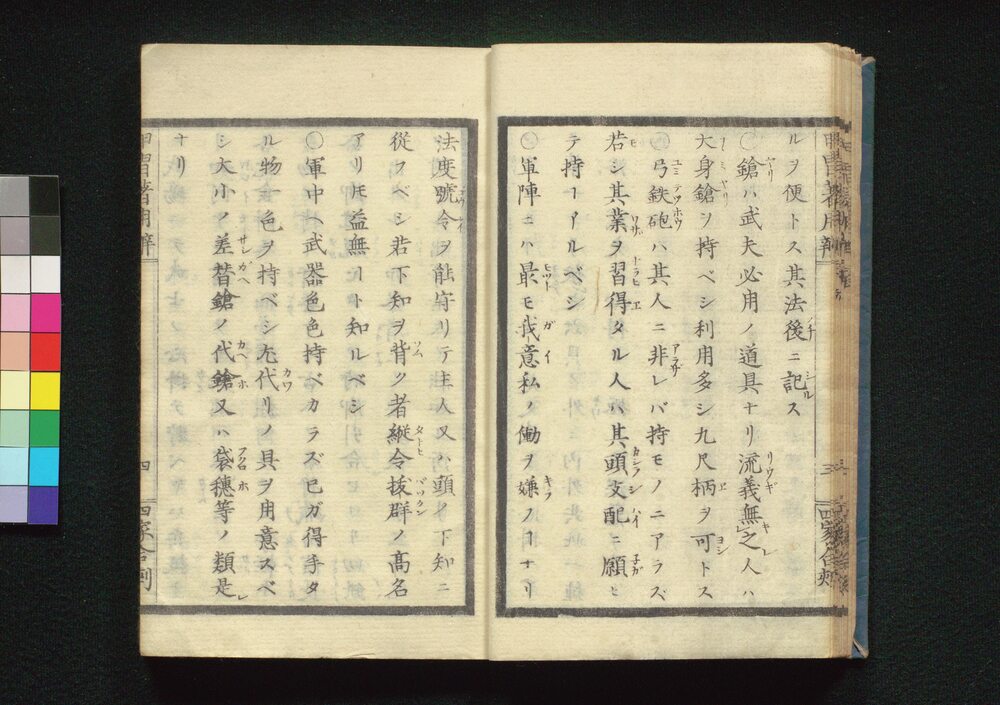 ルヲ便トス其法後ニ記ス
鎗ハ武夫必用ノ道具ナリ流義無之人ハ
大身鎗ヲ持ベシ利用多シ九尺柄ヲ可トス
弓鉄砲ハ其人ニ非レバ持モノニアラズ
若シ其業ヲ習得タル人ハ其頭支配ニ願ヒ
テ持ヿアルベシ
軍陣ニハ最モ我意私ノ働ヲ嫌フヿナリ
法度號令ヲ能守リテ主人又ハ頭ノ下知ニ
從フベシ若下知ヲ背ク者縱令拔群ノ高名
アリ𪜈益無ヿト知ルベシ
軍中ヘ武器色色持ベカラズ已ガ得手タ
ル物一色ヲ持ベシ尤代リノ具ヲ用意スベ
シ大小ノ差替鎗ノ代鎗又ハ袋穗等ノ類是
ナリ
甲冑著用辨
四
四家合刻